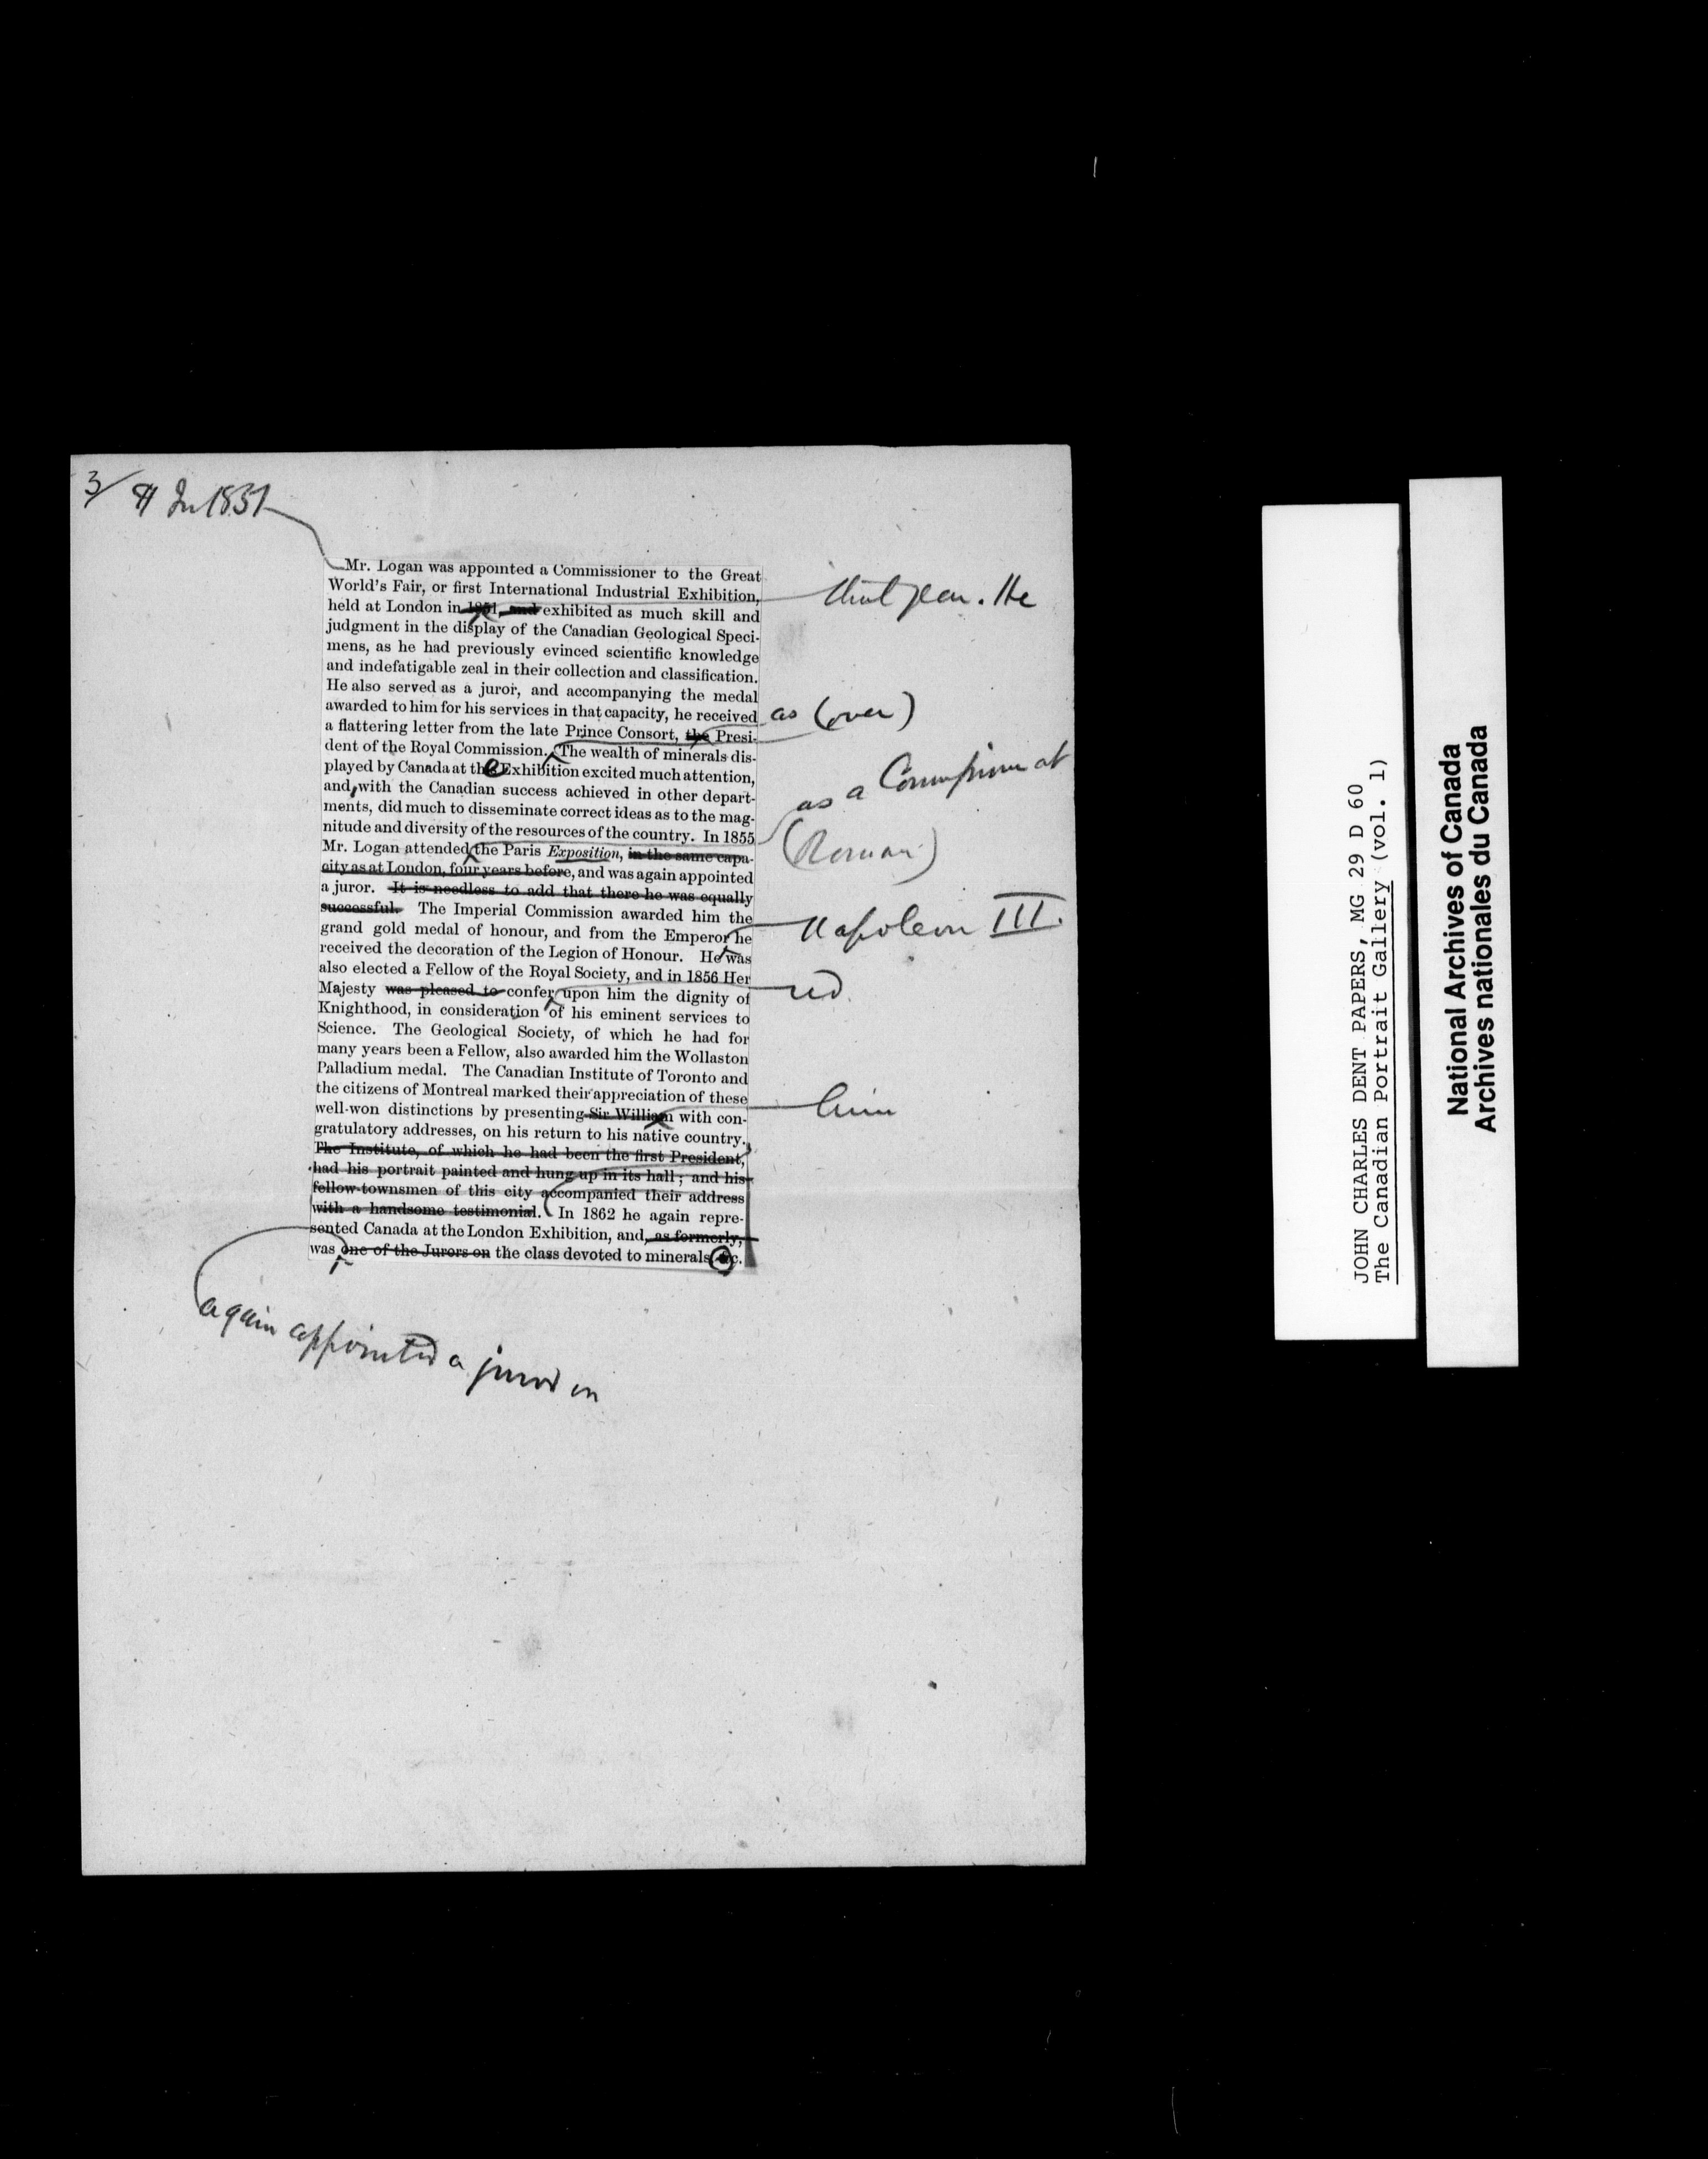 3/ ¶ In 1851
Mr. Logan was appointed a Commissioner to the Great
World's Fair, or first International Industrial Exhibition,
that year. He
held at London in 1851, and exhibited as much skill and
judgment in the display of the Canadian Geological Speci-
mens, as he had previously evinced scientific knowledge
and indefatigable zeal in their collection and classification.
He also served as a juror, and accompanying the medal
awarded to him for his services in that capacity, he received
as (over)
a flattering letter from the late Prince Consort, the Presi-
dent of the Royal Commission. The wealth of minerals dis-
played by Canada at the Exhibition excited much attention,
and, with the Canadian success achieved in other depart-
as a Commissioner at
ments, did much to disseminate correct ideas as to the mag-
nitude and diversity of the resources of the country. In 1855
(Roman)
Mr. Logan attended the Paris Exposition, in the same capa-
city as at London, four years before, and was again appointed
a juror. It is needless to add that there he was equally
successful. The Imperial Commission awarded him the
grand gold medal of honour, and from the Emperor he
Napoleon III.
received the decoration of the Legion of Honour. He was
also elected a Fellow of the Royal Society, and in 1856 Her
Majesty was pleased to confer upon him the dignity of
red
Knighthood, in consideration of his eminent services to
Science. The Geological Society, of which he had for
many years been a Fellow, also awarded him the Wollaston
Palladium medal. The Canadian Institute of Toronto and
the citizens of Montreal marked their appreciation of these
him
well-won distinctions by presenting Sir William with con-
gratulatory addresses, on his return to his native country.
The Institute, of which he had been the first President,
had his portrait painted and hung up in its hall; and his
fellow-townsmen of this city accompanied their address
with a handsome testimonial. In 1862 he again repre-
sented Canada at the London Exhibition, and, as formerly,
was one of the Jurors on the class devoted to minerals, &c.
again appointed a juror in
JOHN CHARLES DENT PAPERS, MG 29 D 60
The Canadian Portrait Gallery (vol. 1)
National Archives of Canada
Archives nationales du Canada